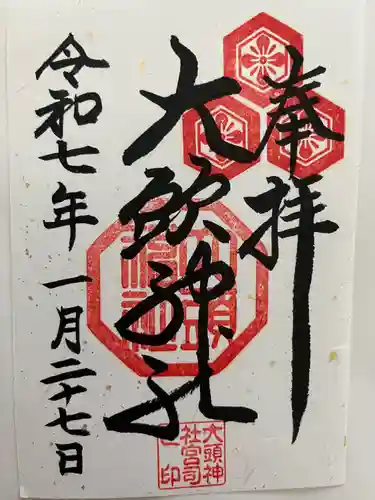 奉拝
大頭神社
令和七年一月二十七日
大頭神
社宮司
之印